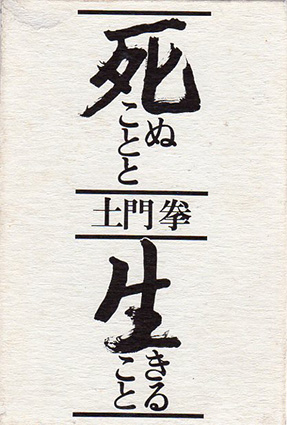 死ぬことと
土門拳
生きること